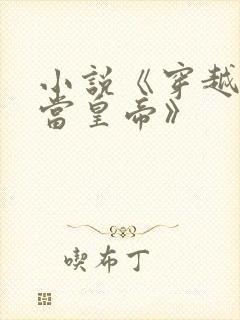 小說《穿越
當皇帝》
喫布丁